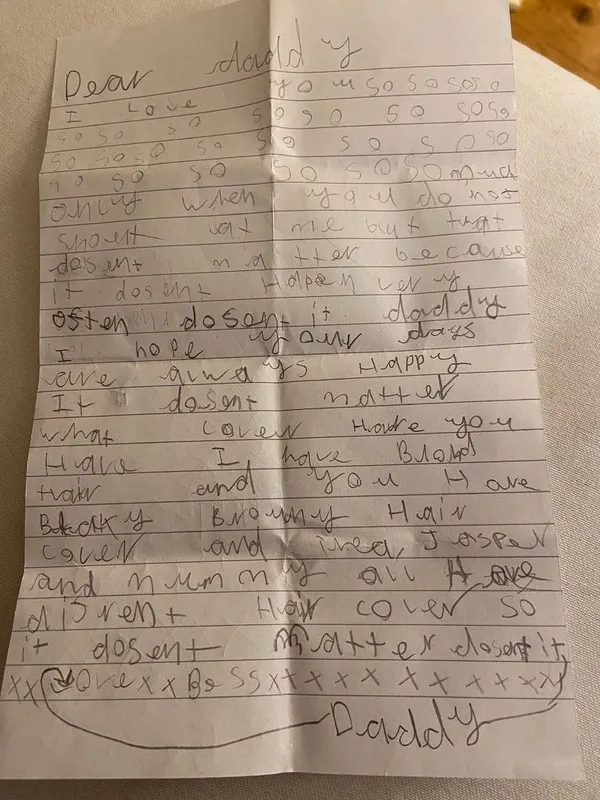 Dear daddy
I Love you so so so so
so so so so so so so so
so so so so so so so so
so so so so so so much
only when you do not
shout at me but that
dosent matter because
it dosent Hapen very
often dosent it daddy
I hope your days
are always Happy
It dosent matter
what cover Hare you
Have I have Blond
Hair and you Have
Blacky Browny Hair
cover and Jasper
and mummy all Have
difrent Hair cover so
it dosent matter dosent it
xx Love xx Bessxtxxxxxxxxx
Daddy